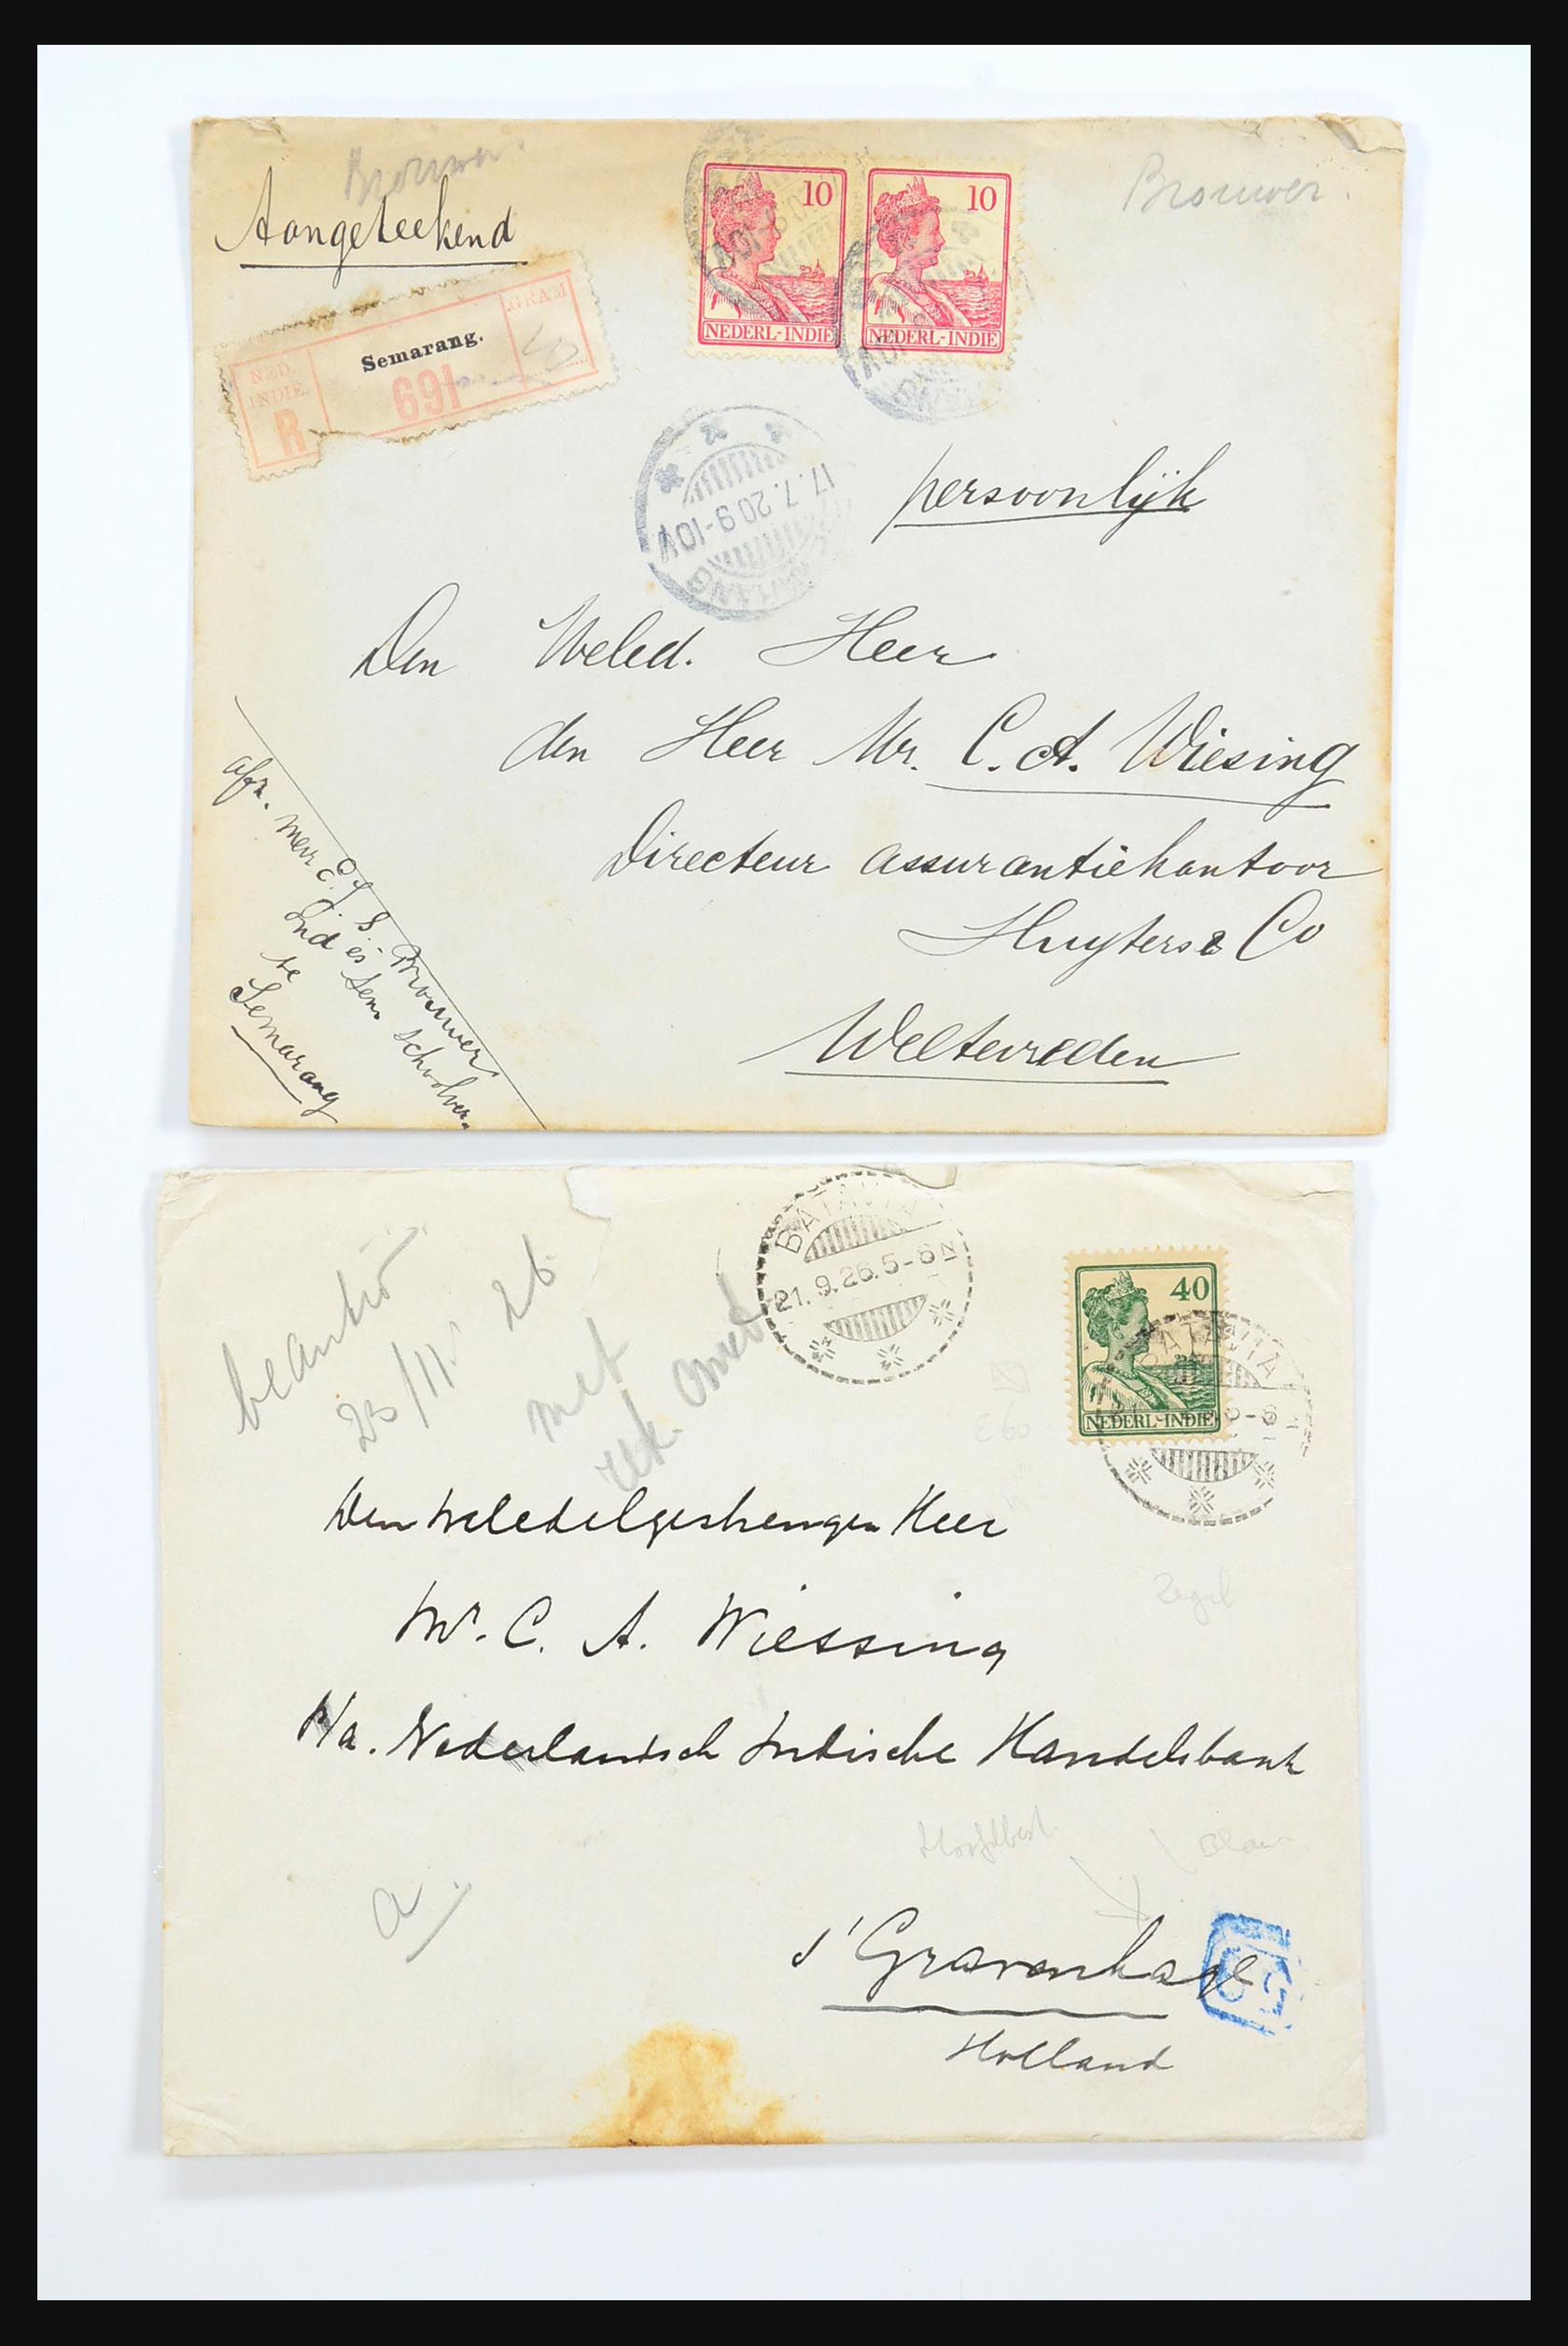 Brouwer.
Brouwer.
Aangeteekend
10
10
NEDERL-INDIE
NEDERL-INDIE
NED. INDIE.
R
Semarang.
691
GRAM
17.7.20 9-10V
persoonlijk
Den Weled. Heer
den Heer Mr. C. A. Wiesing
Directeur assurantiekantoor
Huyters & Co
Weltevreden
afz. mevr E. J. S. Brouwer
Ind es Sem. Schoolver.
te
Semarang
BATAVIA
21.9.26.5-6N
40
NEDERL-INDIE
BATAVIA
beantw
23/11 26
met
rek.
Den weledelgestrengen Heer
Mr. C. A. Wiessing
P/a. Nederlandsch Indische Handelsbank
Zegel
Hoofdbest.
Blauw
a.
s'Gravenhage
Holland